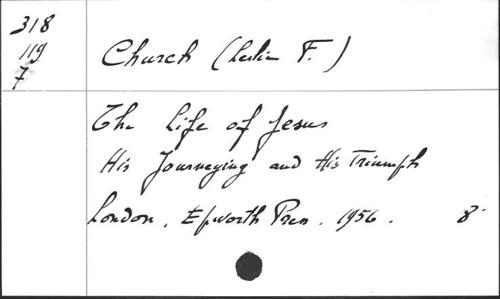 318
119
7
Church (Leslie F.)
The Life of Jesus
His Journeying and His Triumph
London, Epworth Press. 1956. 8°